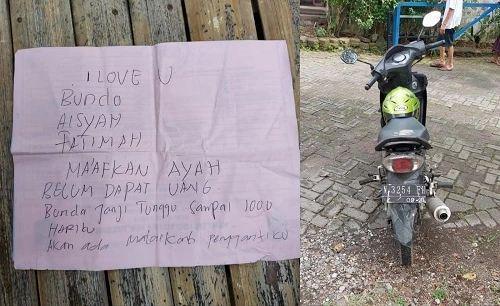 I LOVE U
Bunda
AISYAH
FATIMAH
MA'AFKAN AYAH
BELUM DAPAT UANG
Bunda Janji Tunggu Sampai 1000
HARIbu
Akan ada Malaikat penggantiku
3254